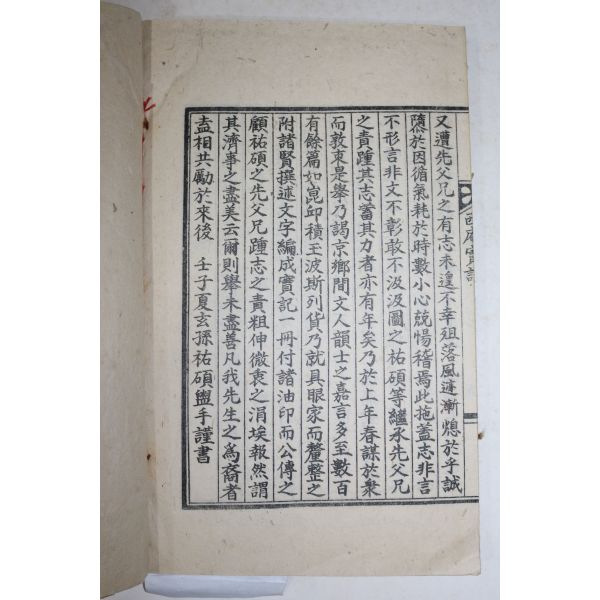 又遭先父兄之有志未遑不幸殂落風遽漸熄於乎誠
隳於因循氣耗於時數小心兢惕稽焉此拖蓋志非言
不形言非文不彰敢不汲汲圖之祐碩等繼承先父兄
之責踵其志蓄其力者亦有年矣乃於上年春謀於衆
而敦束是擧乃謁京鄉間文人韻士之嘉言多至數百
有餘篇如崑邱積玉波斯列貨乃就具眼家而釐整之
附諸賢撰述文字編成實記一冊付諸油印而公傳之
顧祐碩之先父兄踵志之責粗伸微衷之涓埃報然謂
其濟事之盡美云爾則擧未盡善凡我先生之爲裔者
盍相共勵於來後 壬子夏玄孫祐碩盥手謹書